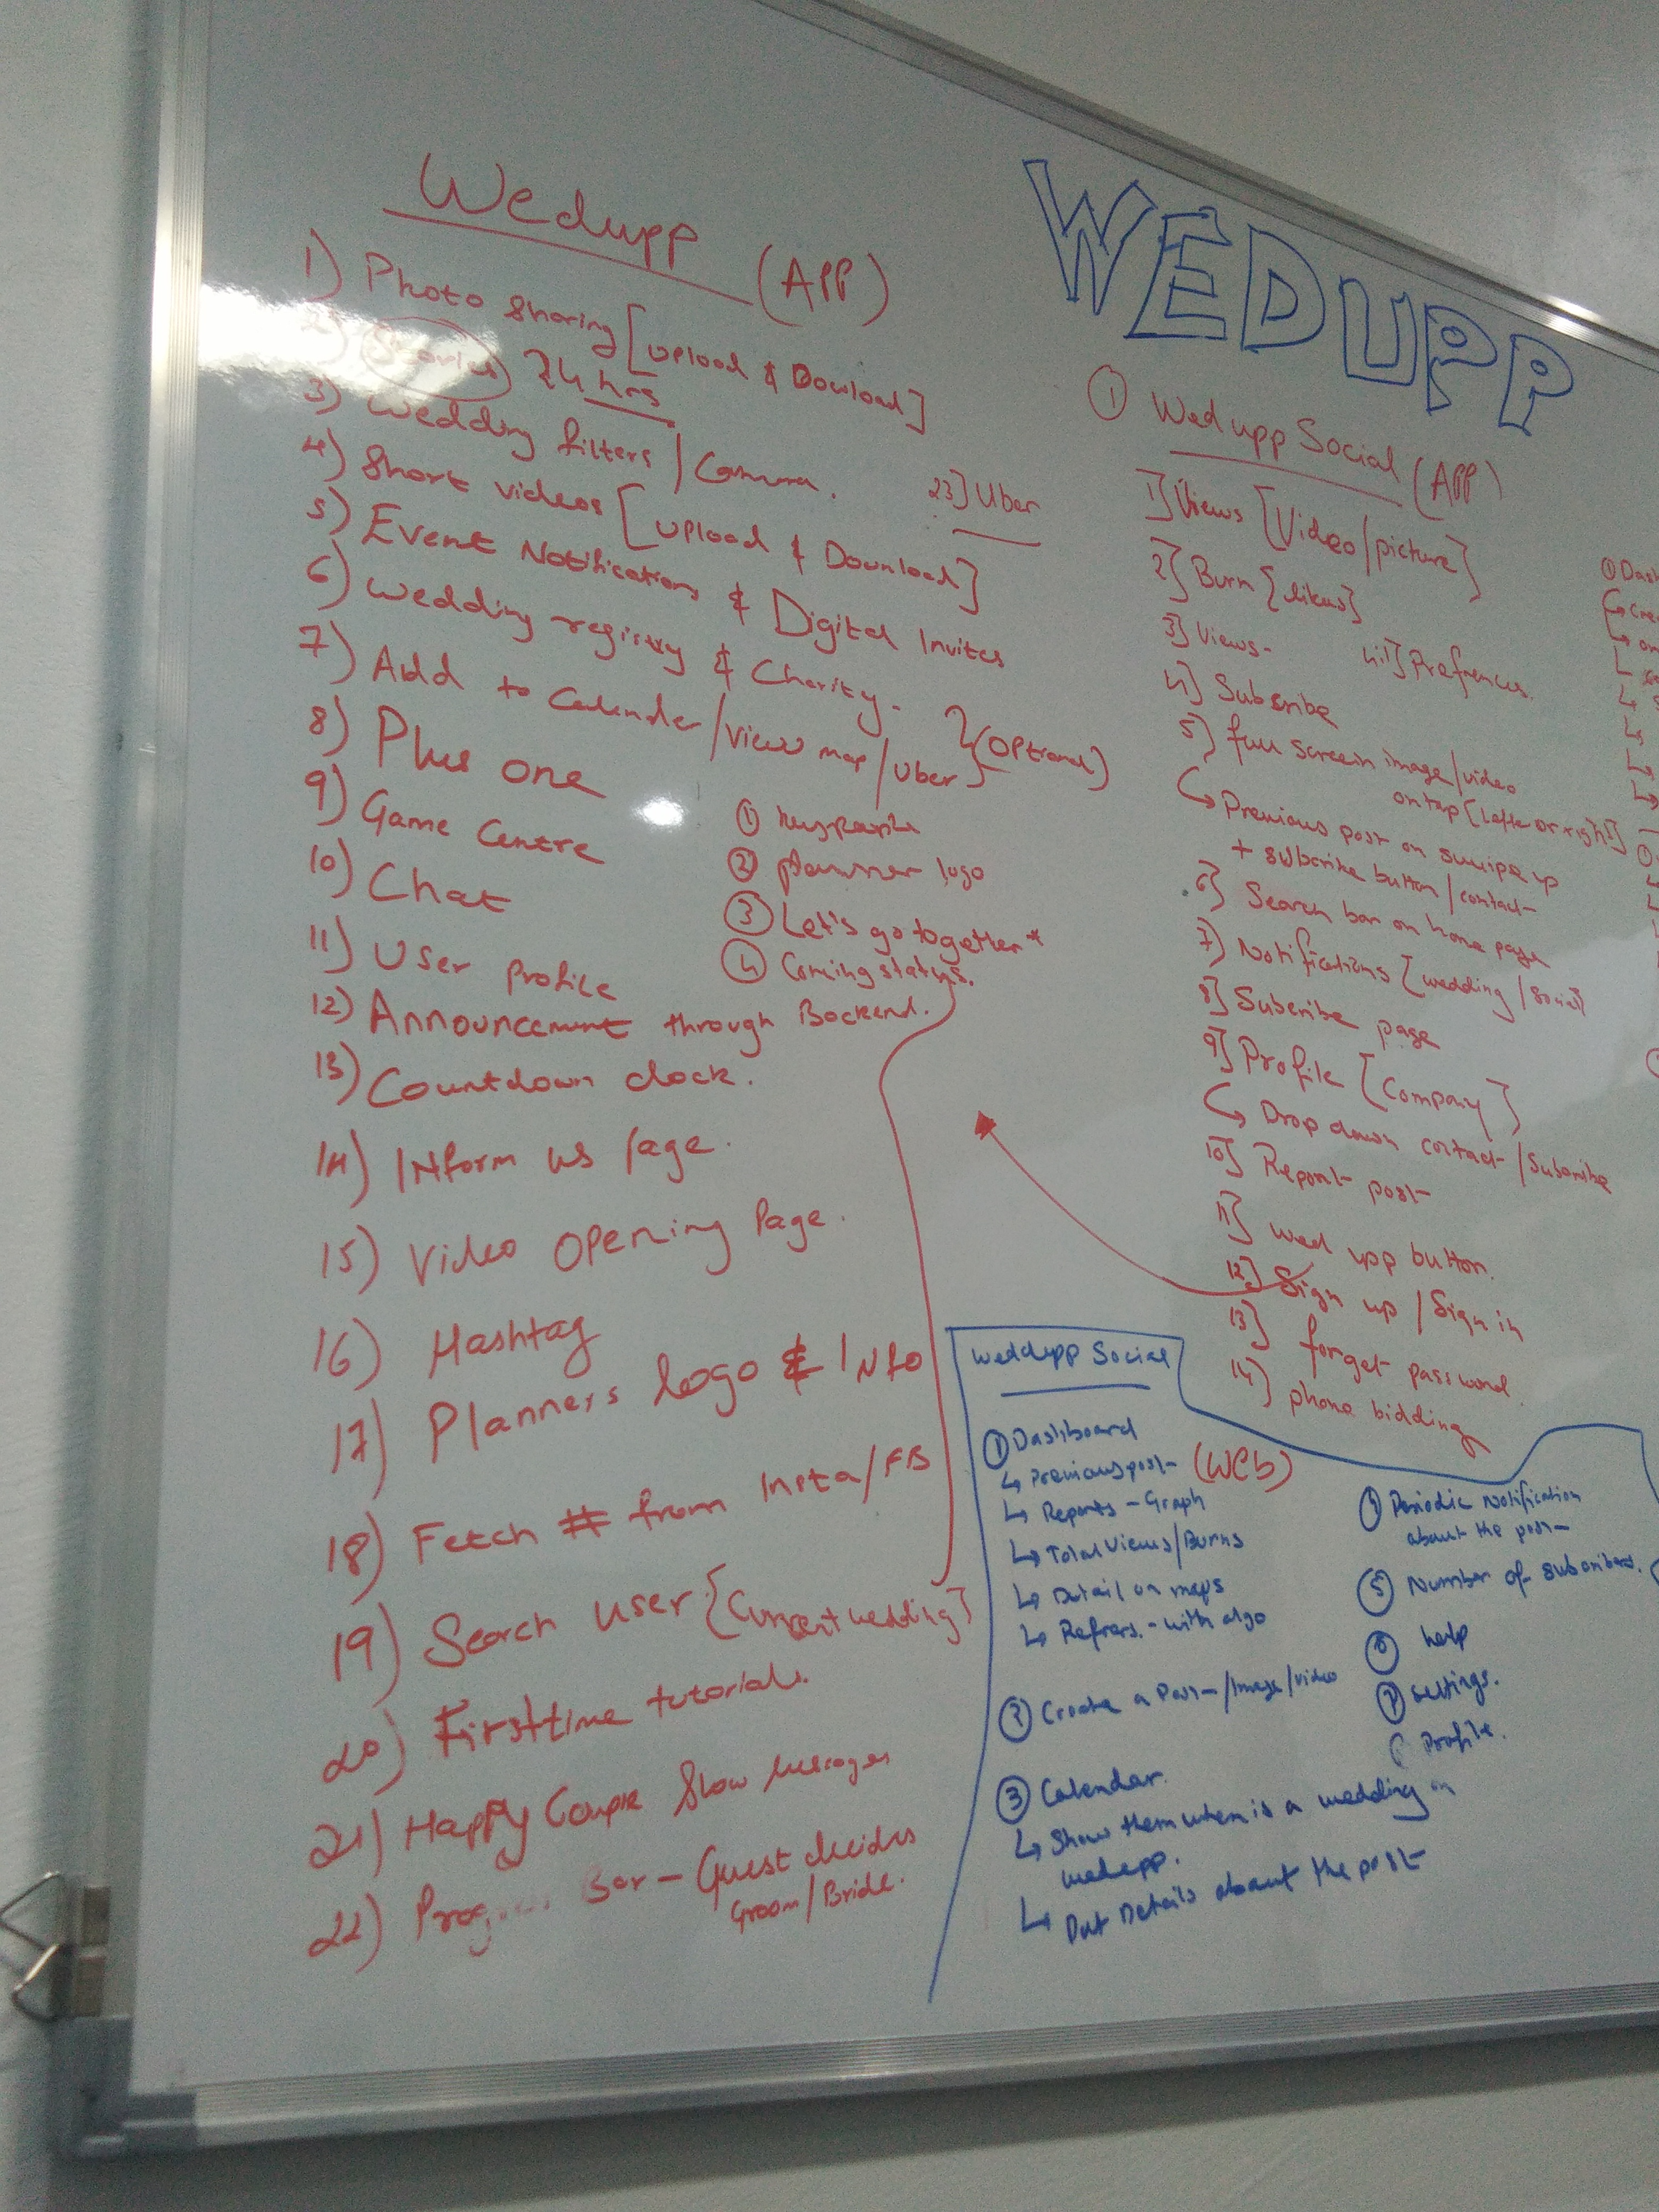 Wedupp (APP)
1) Photo Sharing [Upload & Dowload]
2) Stories 24 hrs
3) Wedding filters / Camera.
4) Short videos [Upload & Download]
5) Event Notifications & Digital Invites
6) Wedding registry & Charity.
7) Add to Calender / View map / Uber } (Optional)
8) Plus one
9) Game Centre
10) Chat
11) User Profile
12) Announcement through Backend.
13) Countdown clock.
14) INform us Page.
15) Video Opening Page.
16) Hashtag
17) Planners logo & INfo
18) Fetch # from Insta/FB
19) Search user {Current wedding}
20) Firsttime tutorials.
21) Happy Couple Show
22) Bar - Guest decides
Groom/Bride.
23] Uber
①
② planner logo
③ Let's go together*
④ Coming status.
WEDUPP
① Wedupp Social (APP)
1] Views [Video/picture]
2] Burn {likes}
3] Views-
4] Subscribe
4.1] Prefrences.
5) full screen image/video
on tap [lefte or right]
↳ Previous post on swipe up
+ subscribe button/contact
6] Search bar on home page
7) Notifications [wedding/Social]
8] Subscribe page
9] Profile [Company]
↳ Drop down contact/Subscribe
10] Report post
11] Wed upp button.
12] Sign up / Sign in
13] forget password
14) phone bidding
Weddupp Social
(Web)
① Dashboard
↳ Previous post
↳ Reports - Graph
↳ Total Views/Burns
↳ Detail on maps
↳ with algo
② Create a Post/Image/video
③ Calendar.
↳ Show them when is a wedding in
wedupp.
↳ Put Details about the post
④ Periodic Notification
about the post
⑤ Number of subscribers.
⑥ help
⑦ Settings.
Profile.
① Das